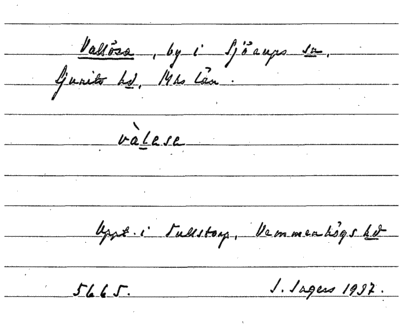 Vallösa, by i Sjörups sn,
Ljunits hd, Mhs län.
vàlesa
Uppt. i Tullstorp, Vemmenhögs hd
5665. I. Ingers 1937.